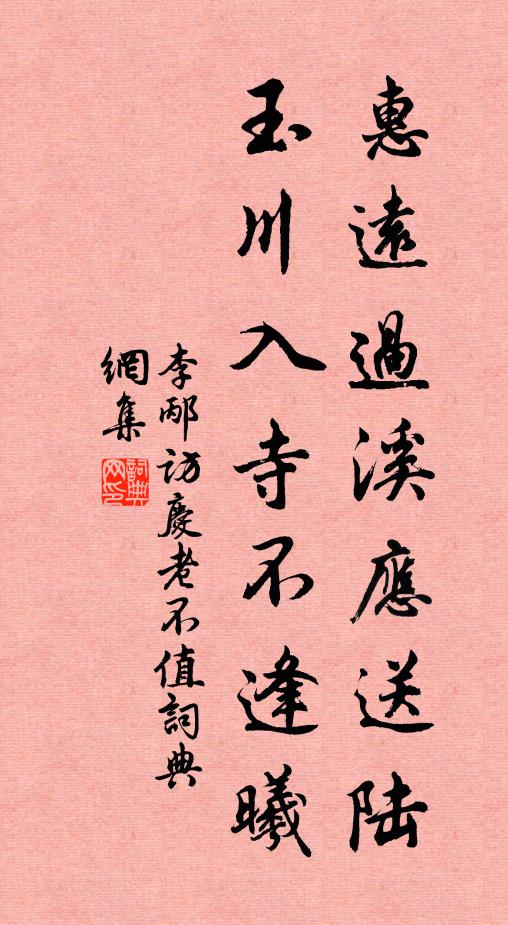 惠遠過溪應送陆
玉川入寺不逢曦
李邴访慶老不值詞典
網集
詞典網印